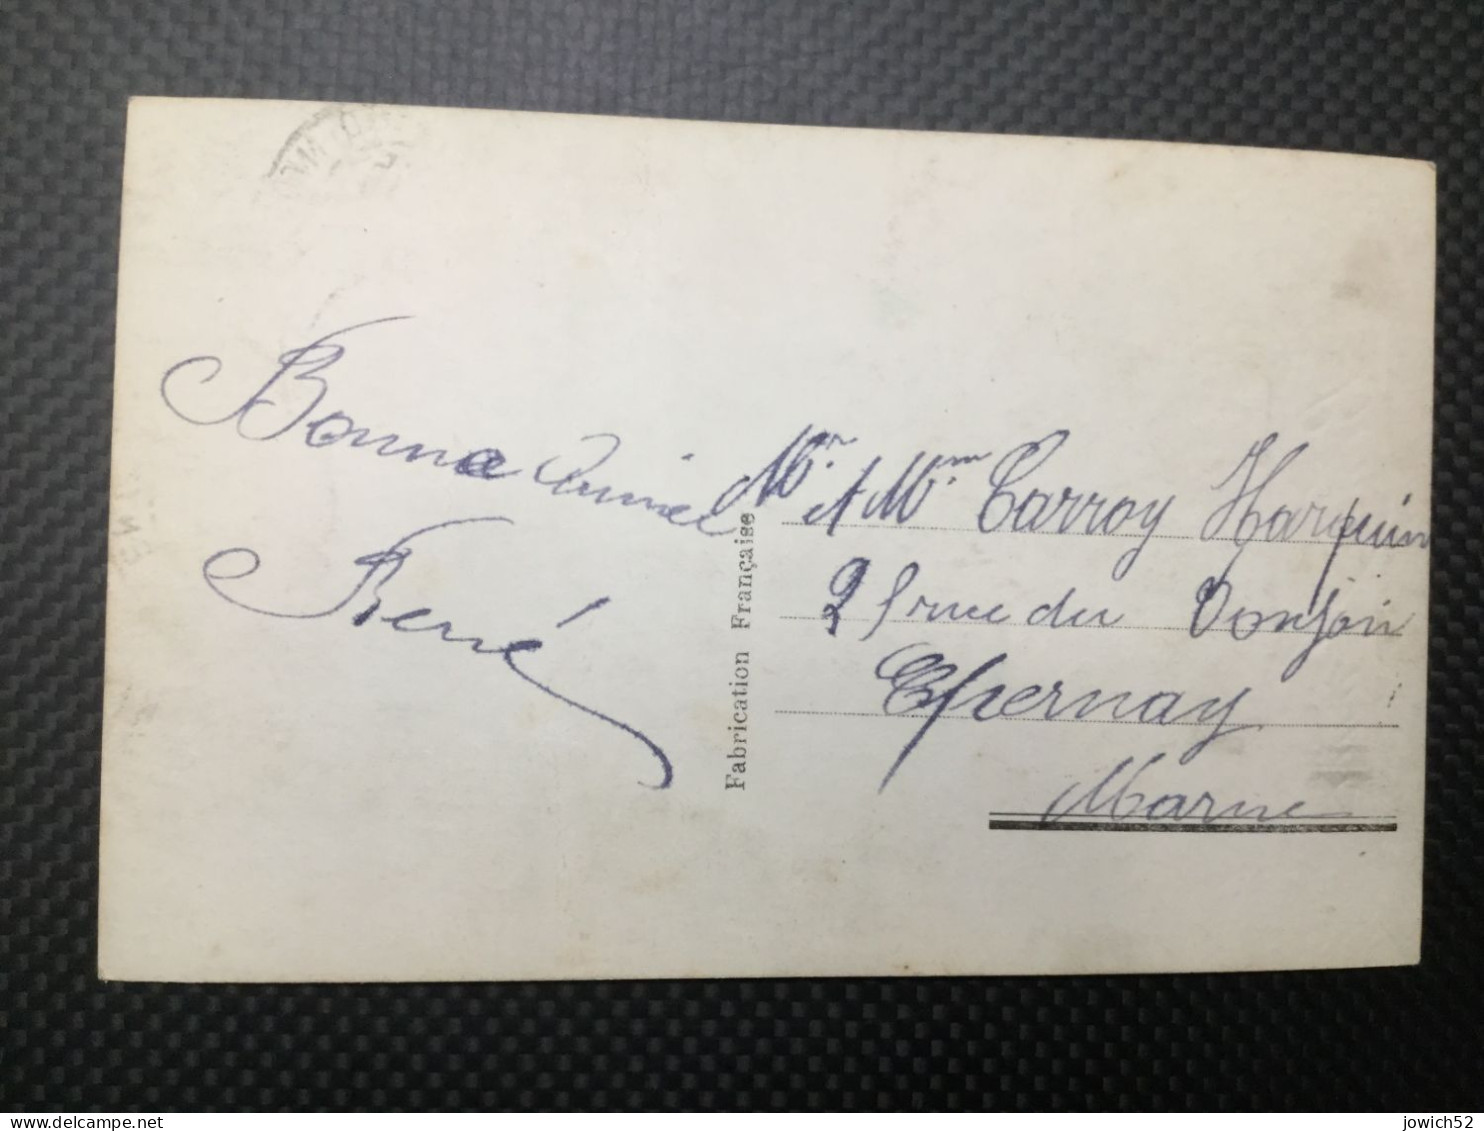 Bonne Année
René
Fabrication Française
Mr et Mme Carroy Harquin
21 rue du Donjon
Epernay
Marne
jowich52